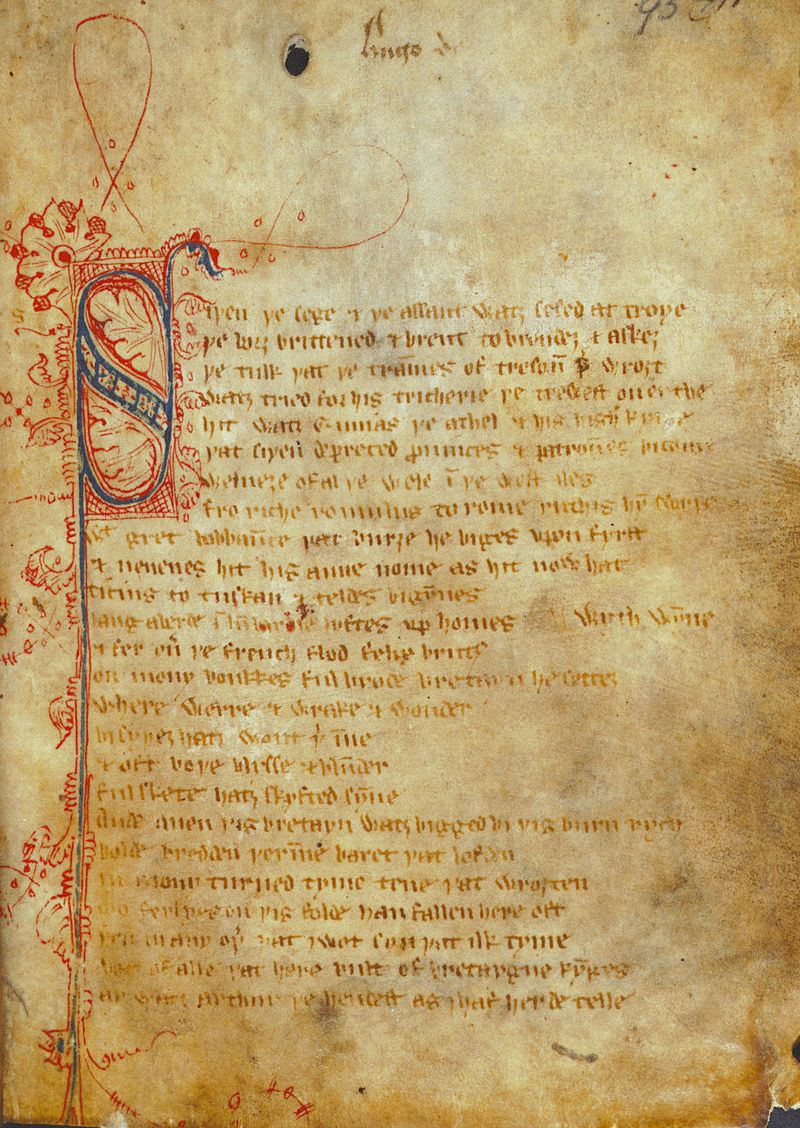 Hugo de
Siþen þe sege & þe assaut watz sesed at troye
þe borȝ brittened & brent to brondeȝ & askez
þe tulk þat þe tra̅mes of tresou̅ þ wroȝt
watz tried for his tricherie þe trewest on erthe
hit watz Ennias þe athel & his highe kynde
þat siþen depreced prouinces & patrou̅es bicome
welneȝe of al þe wele i̅ þe west iles
fro riche romulus to rome ricchis hy̅ swyþe
wt gret bobbau̅ce þat burȝe he biges vpon fyrst
& neuenes hit his aune nome as hit now hat
ticius to tuskan & teldes bigy̅nes
langaberde i̅ lumbardie lyftes vp homes wyth wy̅ne
& fer ou̅ þe french flod felix brutus
on mony bonkkes ful brode bretayn he settez
where werre & wrake & wonder
bi syþez hatz wont þi̅ne
& oft boþe blysse & blu̅der
ful skete hatz skyfted sy̅ne
Ande quen þis bretayn watz bigged bi þis burn rych
bolde bredden þeri̅ne baret þat lofden
in mony turned tyme tene þat wroȝten
mo ferlyes on þis folde han fallen here oft
þen in any oþ þat I wot syn þat ilk tyme
bot of alle þat here bult of bretaygne ky̅ges
ay watz arthur þe hendest as I haf herde telle